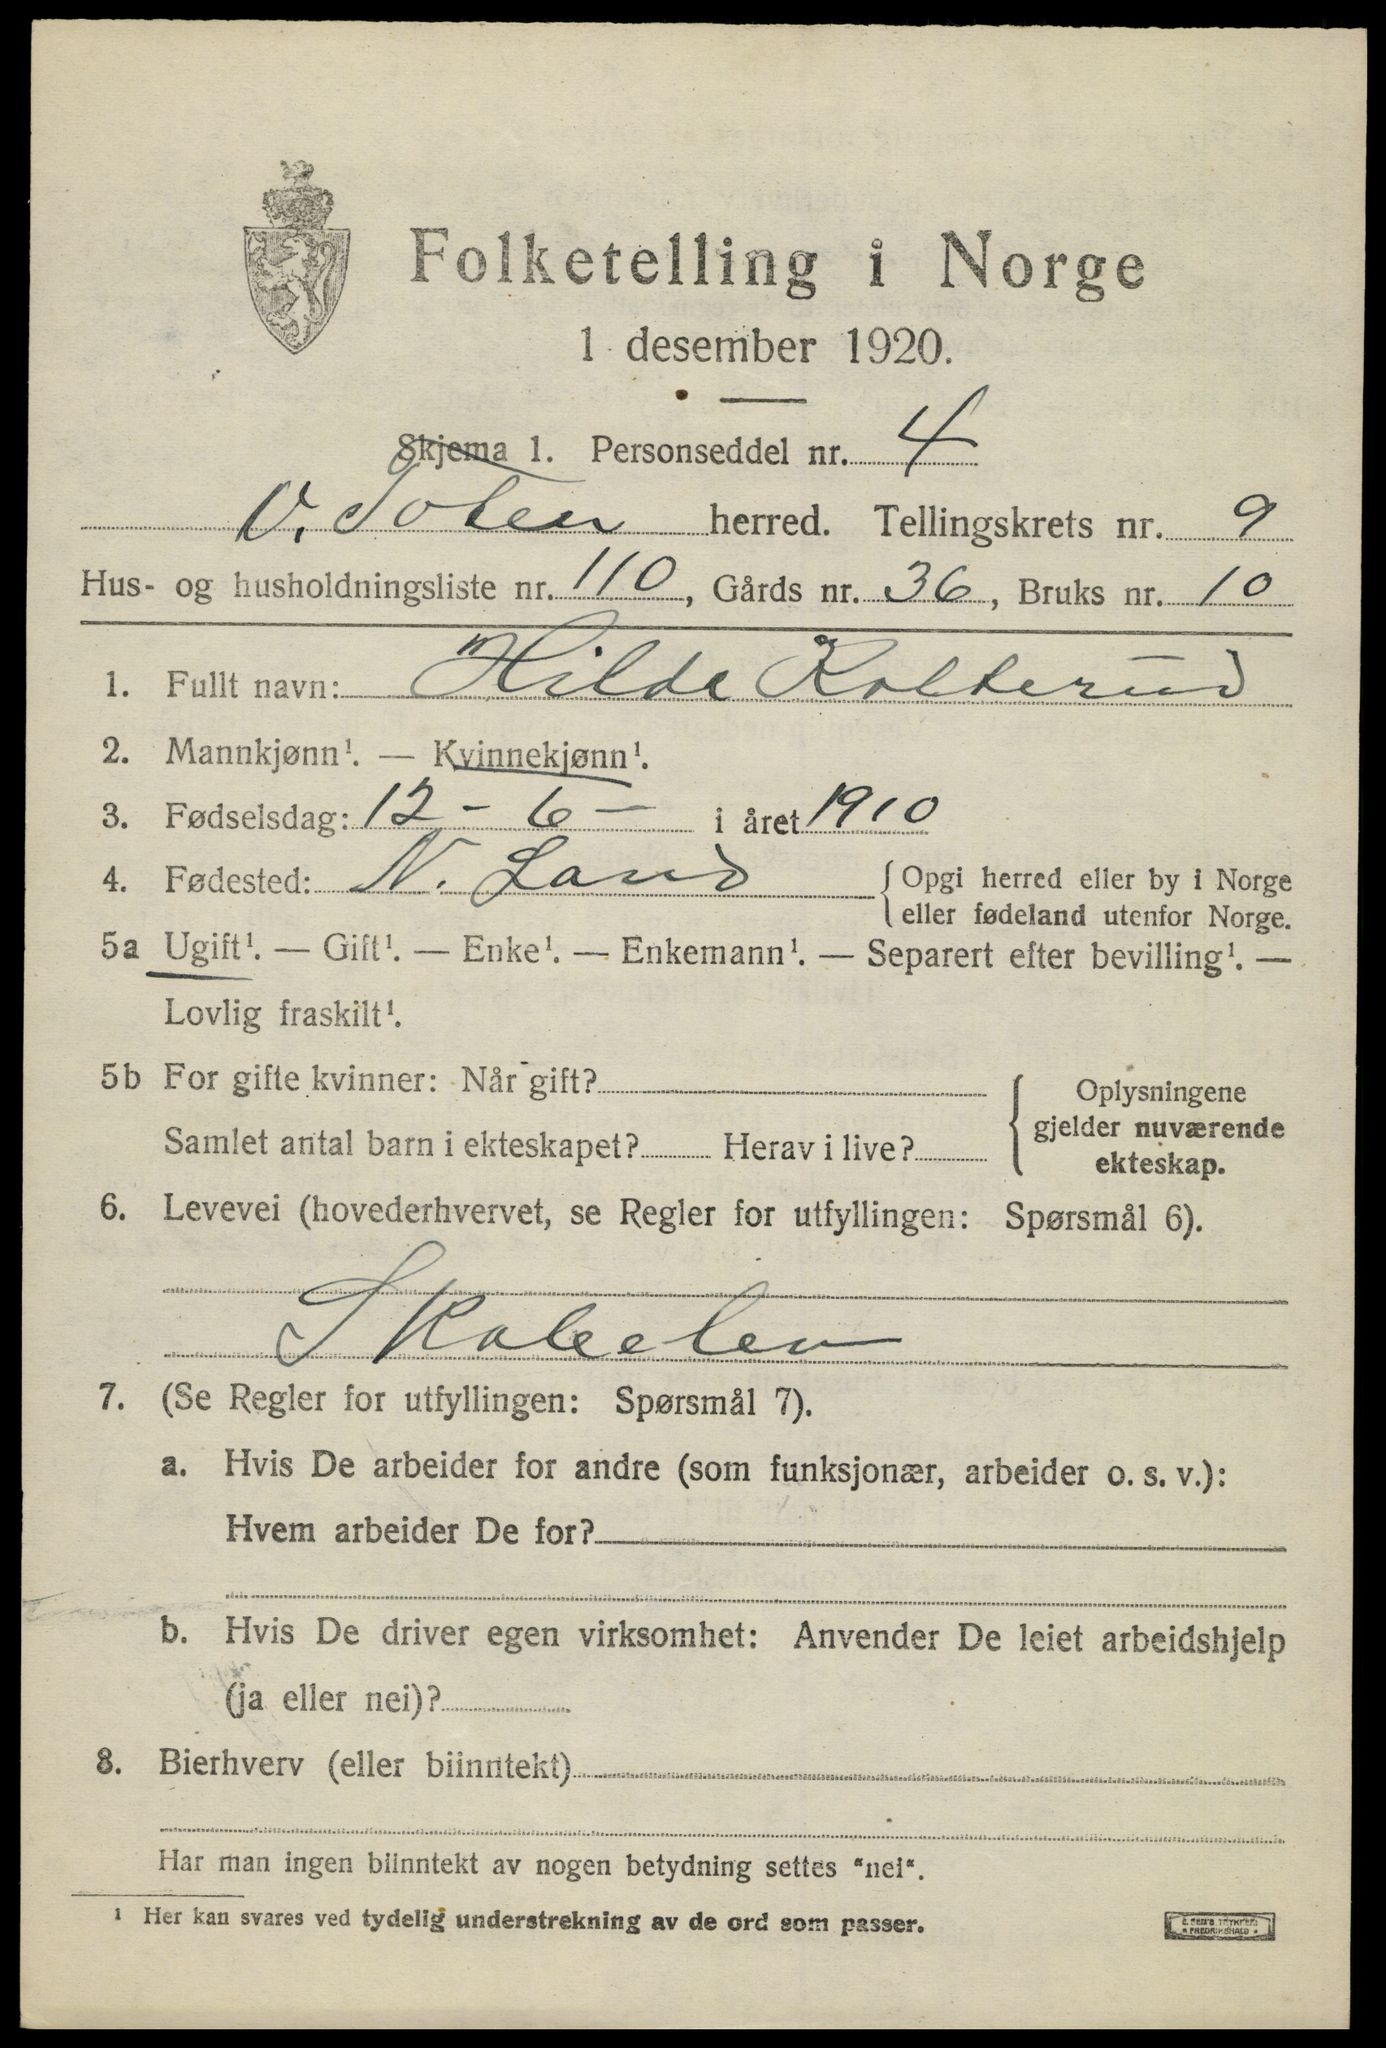 Folketelling i Norge
1 desember 1920.
Skjema 1. Personseddel nr. 4
V. Toten herred. Tellingskrets nr. 9
Hus- og husholdningsliste nr. 110, Gårds nr. 36, Bruks nr. 10
1. Fullt navn: Hilda Kolterud
2. Mannkjønn¹. — Kvinnekjønn¹.
3. Fødselsdag: 12 - 6 - i året 1910
4. Fødested: N. Land { Opgi herred eller by i Norge
eller fødeland utenfor Norge.
5a Ugift¹. — Gift¹. — Enke¹. — Enkemann¹. — Separert efter bevilling¹. —
Lovlig fraskilt¹.
5b For gifte kvinner: Når gift?
Samlet antal barn i ekteskapet? Herav i live?
{ Oplysningene
gjelder nuværende
ekteskap.
6. Levevei (hovederhvervet, se Regler for utfyllingen: Spørsmål 6).
Skoleelev
7. (Se Regler for utfyllingen: Spørsmål 7).
a. Hvis De arbeider for andre (som funksjonær, arbeider o. s. v.):
Hvem arbeider De for?
b. Hvis De driver egen virksomhet: Anvender De leiet arbeidshjelp
(ja eller nei)?
8. Bierhverv (eller biinntekt)
Har man ingen biinntekt av nogen betydning settes "nei".
¹ Her kan svares ved tydelig understrekning av de ord som passer.
E. SEM'S TRYKKERI
FREDRIKSHALD